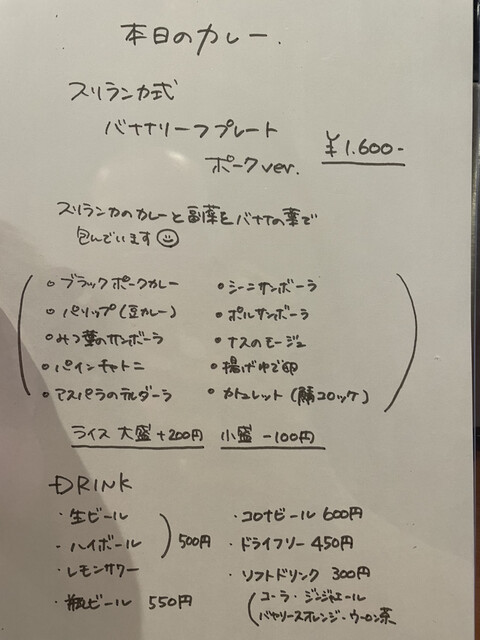 本日のカレー.
スリランカ式
バナナリーフプレート
ポークver.
¥1.600-
スリランカのカレーと副菜をバナナの葉で
包んでいます
○ブラックポークカレー
○パリップ(豆カレー)
○みつ葉のサンボーラ
○パインチャトニ
○アスパラのテルダーラ
○シーニサンボーラ
○ポルサンボーラ
○ナスのモージュ
○揚げゆで卵
○カトゥレット(鯖コロッケ)
ライス 大盛+200円 小盛-100円
DRINK
・生ビール
・ハイボール
・レモンサワー
500円
・瓶ビール 550円
・コロナビール 600円
・ドライフソー 450円
・ソフトドリンク 300円
(コーラ・ジンジャエール
バヤリースオレンジ・ウーロン茶